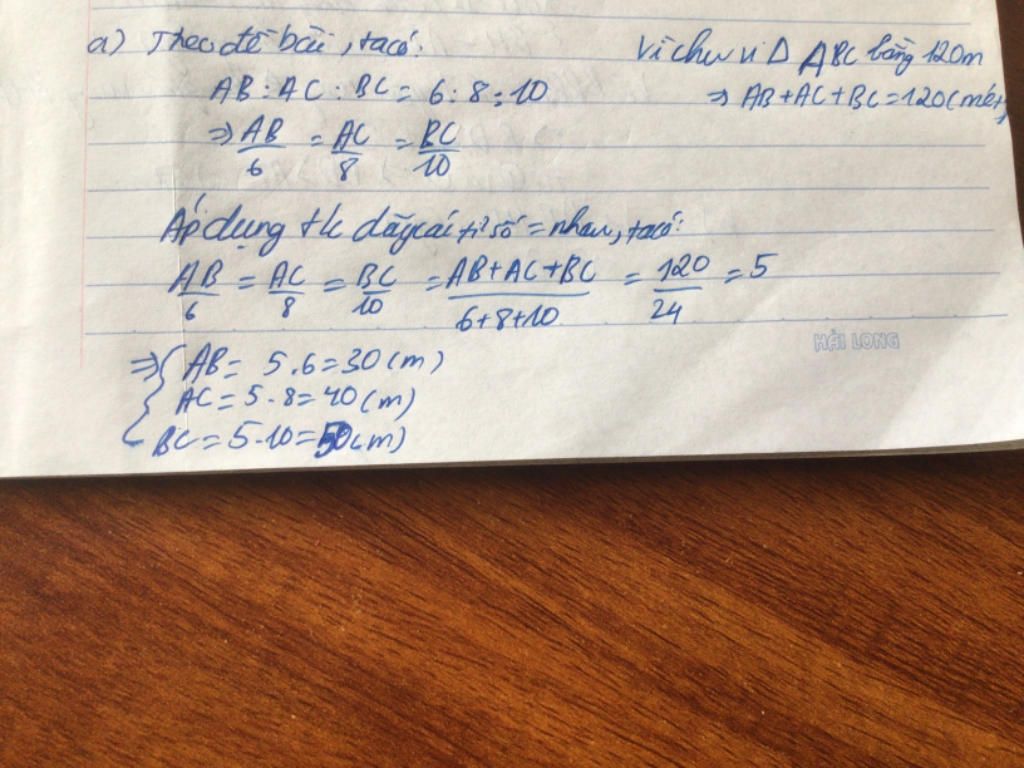 a) Theo đề bài, ta có:
Vì chu vi Δ ABC bằng 120m
AB : AC : BC = 6 : 8 : 10
⇒ AB + AC + BC = 120 (mét)
⇒ AB/6 = AC/8 = BC/10
Áp dụng t/c dãy các tỉ số = nhau, ta có:
AB/6 = AC/8 = BC/10 = AB+AC+BC/6+8+10 = 120/24 = 5
HẢI LONG
⇒ { AB = 5.6 = 30 (m)
AC = 5.8 = 40 (m)
BC = 5.10 = 50 (m)